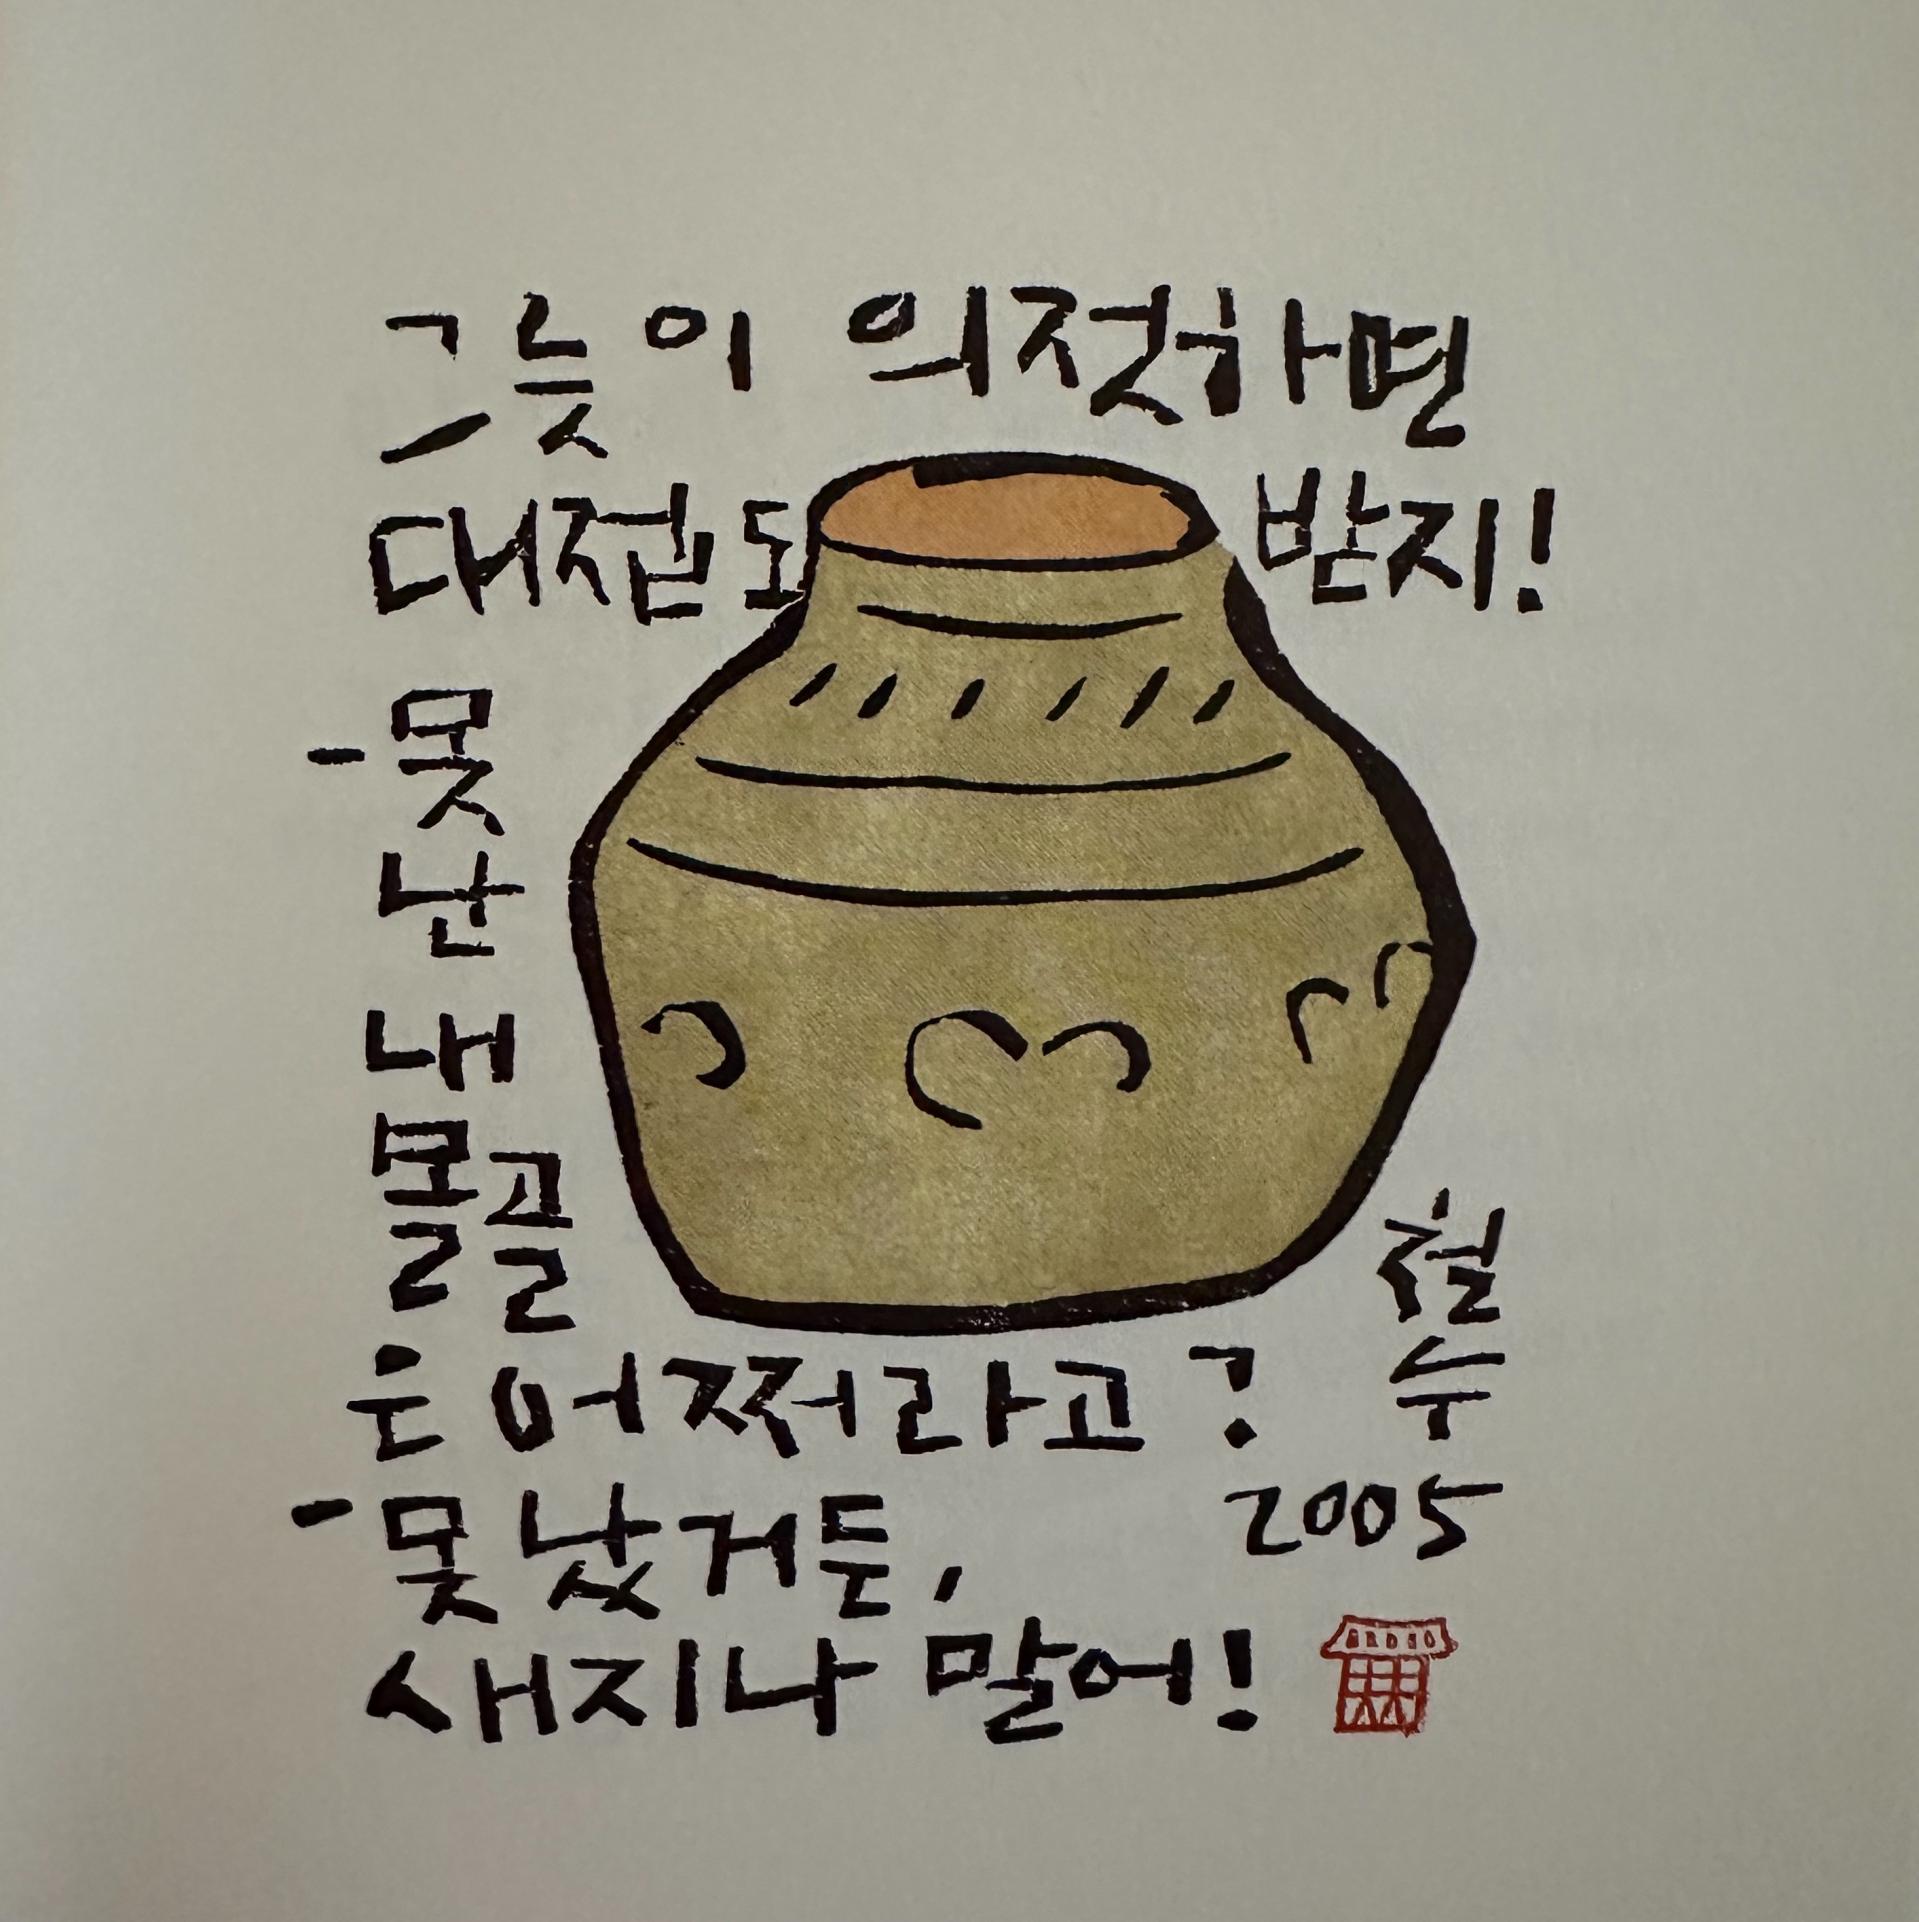 그릇이 의젓하면
대접도 받지!
-못
난
내
몰골
은 어쩌라고?
-못났거든,
새지나 말어!
철수
2005